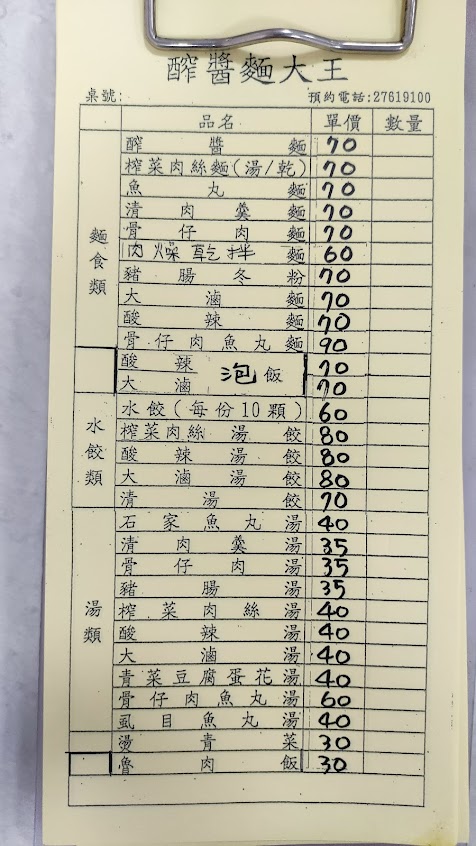 醡醬麵大王
桌號: 預約電話:27619100
品名 單價 數量
麵食類
醡醬麵 70
榨菜肉絲麵(湯/乾) 70
魚丸麵 70
清肉羹麵 70
骨仔肉麵 70
肉燥乾拌麵 60
豬腸冬粉 70
大滷麵 70
酸辣麵 70
骨仔肉魚丸麵 90
酸辣泡飯 70
大滷泡飯 70
水餃類
水餃(每份10顆) 60
榨菜肉絲湯餃 80
酸辣湯餃 80
大滷湯餃 80
清湯餃 70
湯類
石家魚丸湯 40
清肉羹湯 35
骨仔肉湯 35
豬腸湯 35
榨菜肉絲湯 40
酸辣湯 40
大滷湯 40
青菜豆腐蛋花湯 40
骨仔肉魚丸湯 60
虱目魚丸湯 40
燙青菜 30
魯肉飯 30